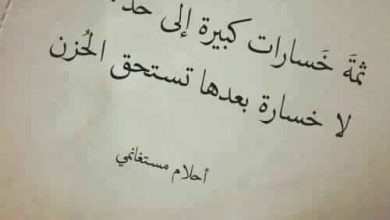 ثمَةَ خَسارات كبيرة إلى حدّ
لا خسارة بعدها تستحق الحُزن
أحلام مستغانمي